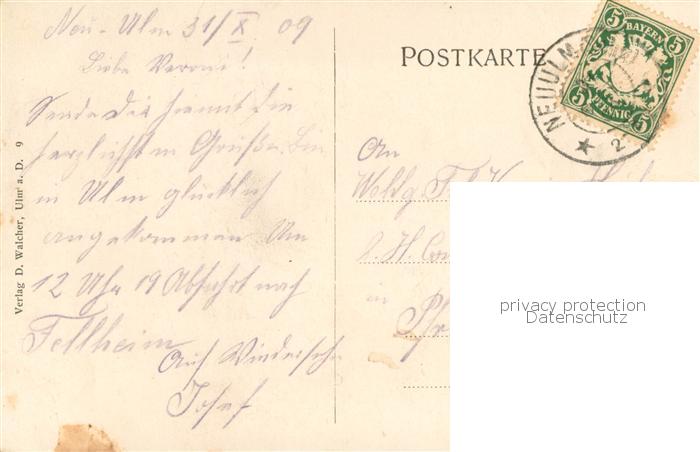 Neu-Ulm 31/X 09
Liebe Veroni!
Sende Dir hiermit die
herzlichsten Grüße. Bin
in Ulm glücklich
angekommen Um
12 Uhr 19 Abfahrt nach
Fellheim
Auf Wiedersehn
Josef
Verlag D. Walcher, Ulm a. D. 9
POSTKARTE
5 5
BAYERN
PFENNIG
5 5
NEUULM
2
An
in
privacy protection
Datenschutz